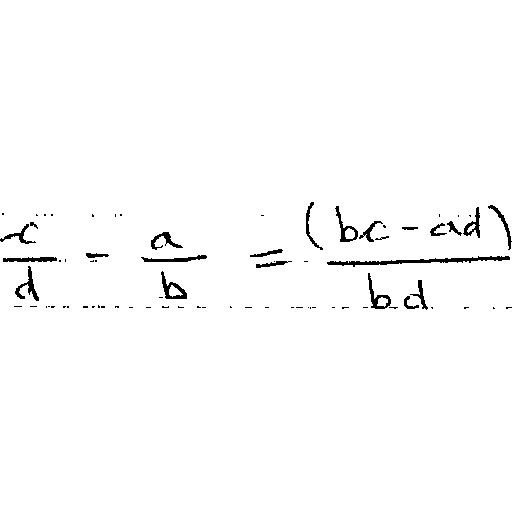 \frac{c}{d} - \frac{a}{b} = \frac{(bc - ad)}{bd}